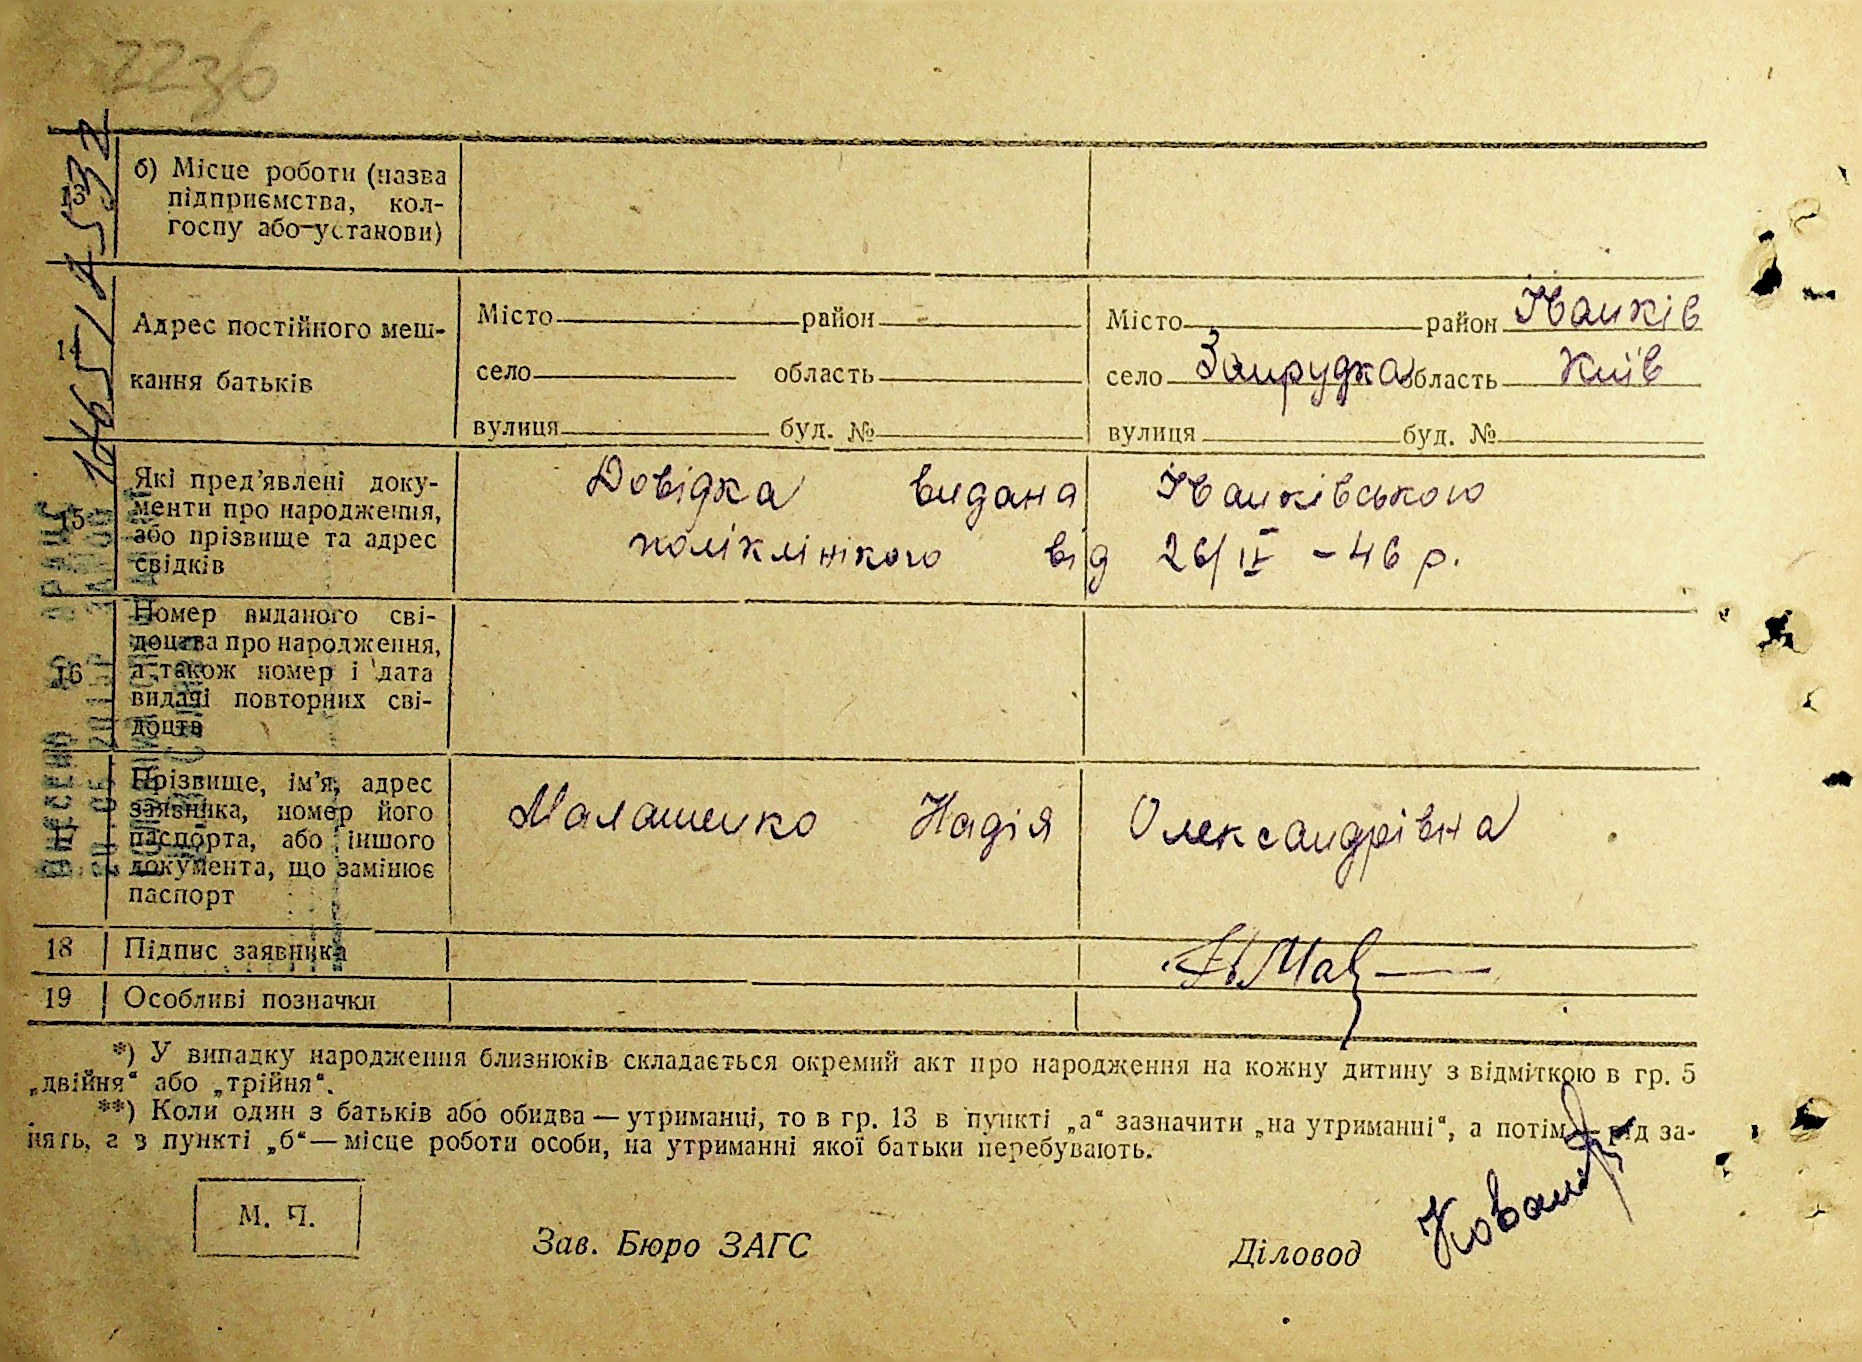 2236
13 б) Місце роботи (назва
підприємства, кол-
госпу або установи)
14 Адрес постійного меш-
кання батьків
Місто район
село область
вулиця буд. №
Місто район Іванків
село Запрудка область Київ
вулиця буд. №
15 Які пред'явлені доку-
менти про народження,
або прізвище та адрес
свідків
Довідка видана Іванківською
поліклінікою від 26/IV - 46 р.
16 Номер выданого сві-
доцтва про народження,
а також номер і дата
видачі повторних сві-
доцтв
17 Прізвище, ім'я, адрес
заявника, номер його
паспорта, або іншого
документа, що замінює
паспорт
Малашенко Надія Олександрівна
18 Підпис заявника
19 Особливі позначки
*) У випадку народження близнюків складається окремий акт про народження на кожну дитину з відміткою в гр. 5
„двійня“ або „трійня“.
**) Коли один з батьків або обидва — утриманці, то в гр. 13 в пункті „а“ зазначити „на утриманні“, а потім — рід за-
нять, а в пункті „б“ — місце роботи особи, на утриманні якої батьки перебувають.
М. П.
Зав. Бюро ЗАГС
Діловод